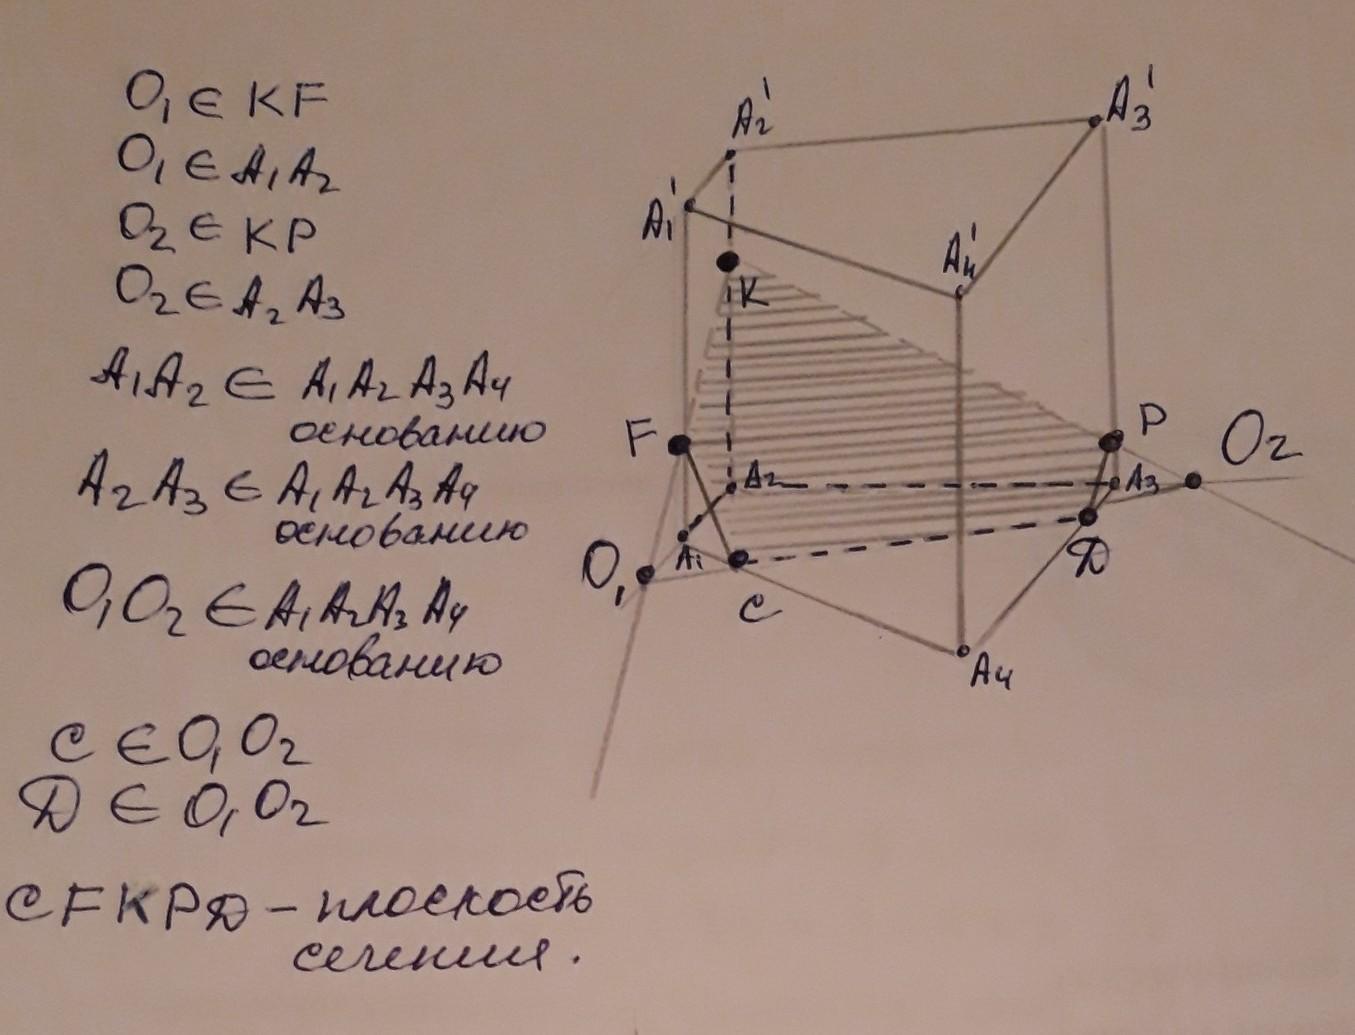 O₁ ∈ KF
O₁ ∈ A₁A₂
O₂ ∈ KP
O₂ ∈ A₂A₃
A₁A₂ ∈ A₁A₂A₃A₄
основанию
A₂A₃ ∈ A₁A₂A₃A₄
основанию
O₁O₂ ∈ A₁A₂A₃A₄
основанию
C ∈ O₁O₂
Д ∈ O₁O₂
CFKPД – плоскость
сечения.
A₂'
A₃'
A₁'
A₄'
K
F
P
O₂
A₂
A₃
A₁
O₁
C
Д
A₄